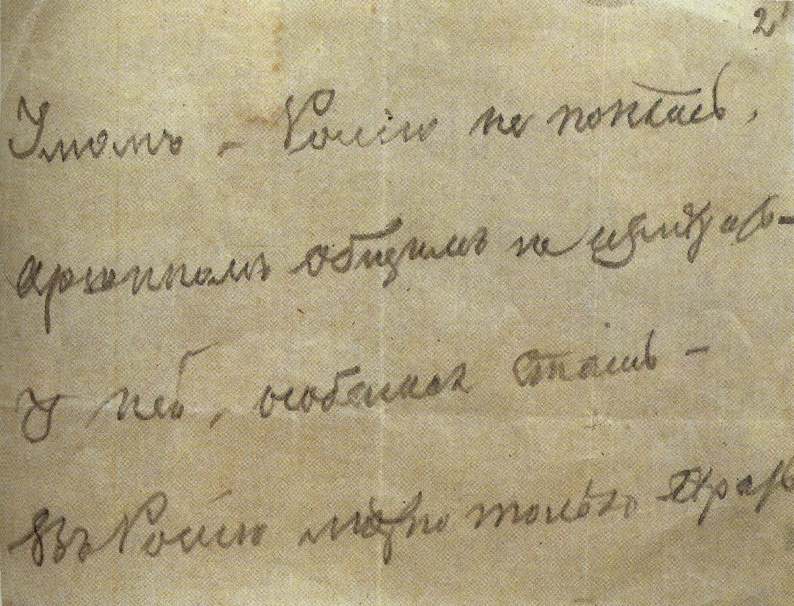 2
Умомъ – Россію не понять,
аршиномъ общимъ не измѣрить –
У ней, особенная стать –
Въ Россію можно только вѣрить